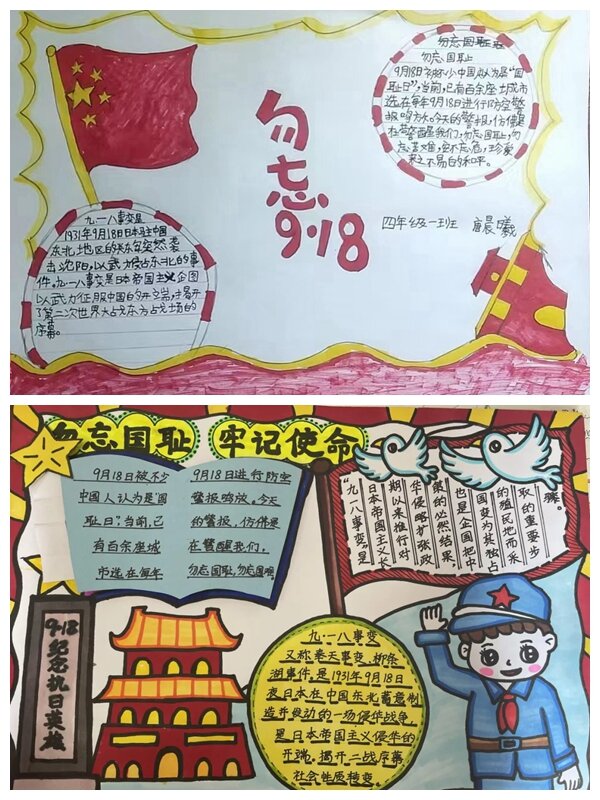 勿忘
9·18
勿忘国耻
勿忘国耻
9月18日被不少中国人认为是“国
耻日”,当前,已有百余座城市
选在每年9月18日进行防空警
报鸣放。今天的警报,仿佛是
在警醒我们,勿忘国耻,勿
忘苦难,安不忘危,珍爱
来之不易的和平。
四年级一班 唐晨曦
九·一八事变是
1931年9月18日日本驻中国
东北地区的关东军突然袭
击沈阳,以武力侵占东北的事
件。九一八事变是日本帝国主义企图
以武力征服中国的开端,揭开
了第二次世界大战东方战场的
序幕。
勿忘国耻 牢记使命
9月18日被不少
中国人认为是“国
耻日”。当前,已
有百余座城
市选在每年
9月18日进行防空
警报鸣放。今天
的警报,仿佛是
在警醒我们,
勿忘国耻,勿忘国难。
“九一八事变”是
日本帝国主义长
期以来推行对
华侵略扩张政
策的必然结果,
也是企图把中
国变为其独占
的殖民地而采
取的重要步
骤。
9·18
纪念抗日英雄
九·一八事变
又称奉天事变、柳条
湖事件,是1931年9月18日
夜日本在中国东北蓄意制
造并发动的一场侵华战争,
是日本帝国主义侵华的
开端。揭开二战序幕
社会性质转变。